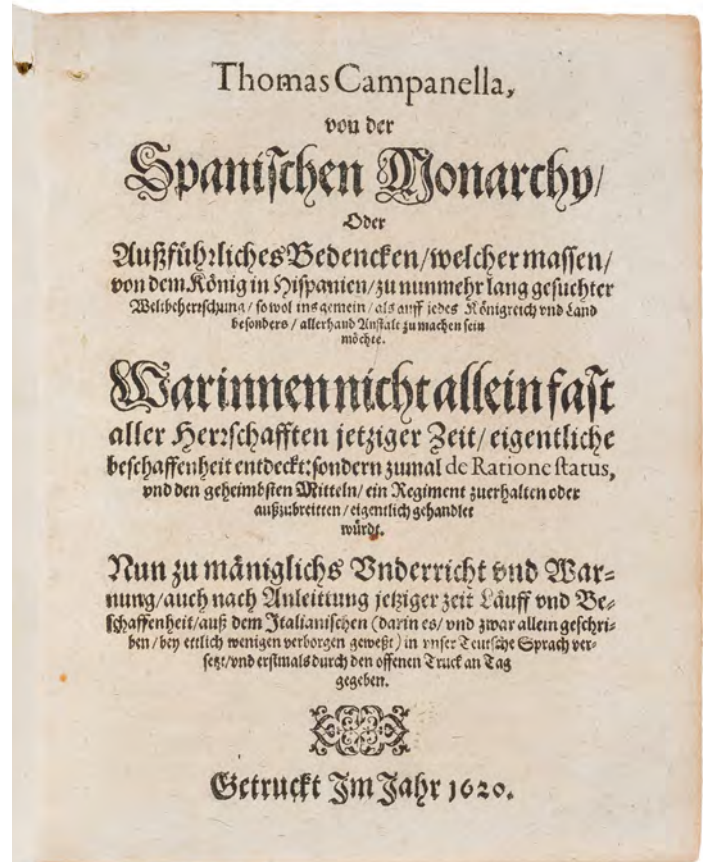 Thomas Campanella,
von der
Spanischen Monarchy/
Oder
Außführliches Bedencken/welcher massen/
von dem König in Hispanien/zu nunmehr lang gesuchter
Weltbeherrschung/sowol ins gemein/als auff jedes Königreich vnd Land
besonders/allerhand Anstalt zu machen sein
möchte.
Warinnen nicht allein fast
aller Herrschafften jetziger Zeit/eigentliche
beschaffenheit entdeckt:sondern zumal de Ratione status,
vnd den geheimbsten Mitteln/ein Regiment zuerhalten oder
außzubreitten/eigentlich gehandlet
würdt.
Nun zu mäniglichs Vnderricht vnd War=
nung/auch nach Anleittung jetziger zeit Läuff vnd Be=
schaffenheit/auß dem Italianischen (darin es/vnd zwar allein geschri=
ben/bey ettlich wenigen verborgen geweßt) in vnser Teutsche Sprach ver=
setzt/vnd erstmals durch den offenen Truck an Tag
gegeben.
Getruckt Im Jahr 1620.